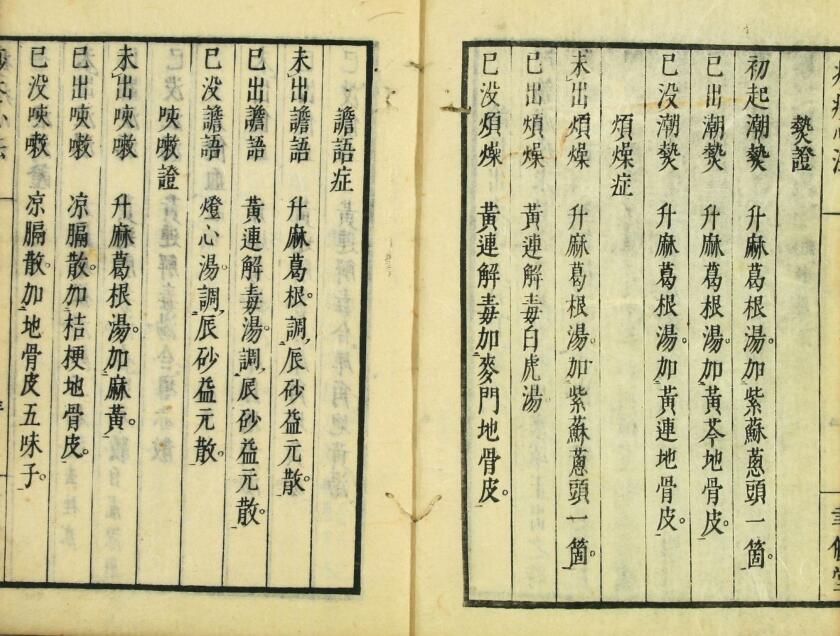 𤍠證
初起潮𤍠 升麻葛根湯。加紫蘇蔥頭一箇。
已出潮𤍠 升麻葛根湯。加黃芩地骨皮。
已没潮𤍠 升麻葛根湯加黃連地骨皮。
煩燥症
未出煩燥 升麻葛根湯。加紫蘇蔥頭一箇。
已出煩燥 黃連解毒白虎湯
已没煩燥 黃連解毒加麥門地骨皮。
譫語症
未出譫語 升麻葛根。調辰砂益元散。
已出譫語 黃連解毒湯。調辰砂益元散。
已没譫語 燈心湯。調辰砂益元散。
咦嗽證
未出咦嗽 升麻葛根湯加麻黃。
已出咦嗽 凉膈散。加桔梗地骨皮。
已没咦嗽 凉膈散。加地骨皮五味子。